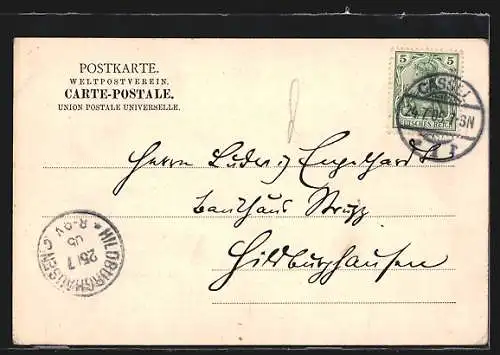 POSTKARTE.
WELTPOSTVEREIN.
CARTE-POSTALE.
UNION POSTALE UNIVERSELLE.
5 5
DEUTSCHES REICH
CASSEL
7-8N
* 1
Herrn Ludwig Engelhard
Bankhaus Strupp
Hildburghausen
HILDBURGHAUSEN
26/7
05
* 8-9V.